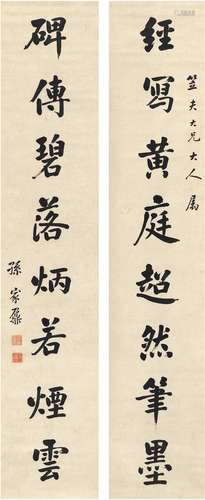 經寫黃庭超然筆墨
笠夫大兄大人屬
碑傳碧落炳若煙雲
孫家鼐